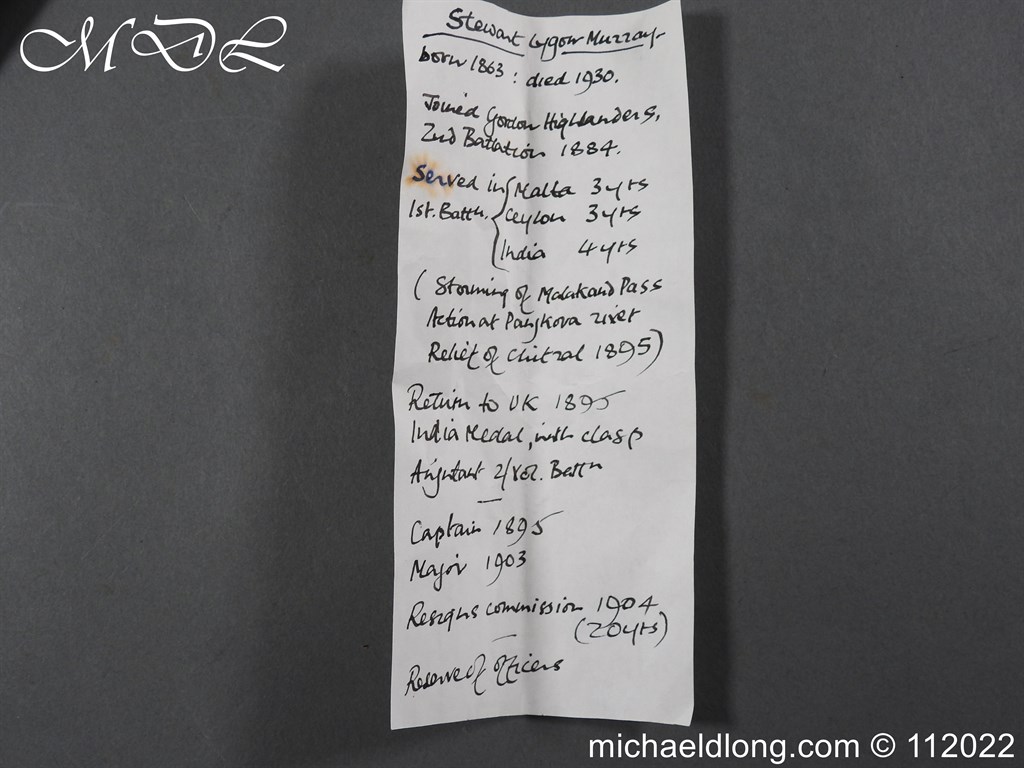 MDL
Stewart Lygon Murray
born 1863 : died 1930.
Joined Gordon Highlanders,
2nd Battation 1884.
Served in { Malta 3 yrs
1st. Battn. { Ceylon 3 yrs
India 4 yrs
( Storming of Malakand Pass
Action at Panjkora river
Relief of Chitral 1895)
Return to UK 1895
India Medal, with clasp
Adjutant 2/Vol. Battn
—
Captain 1895
Major 1903
Resigns commission 1904
(20 yrs)
—
Reserve of officers
michaeldlong.com © 112022